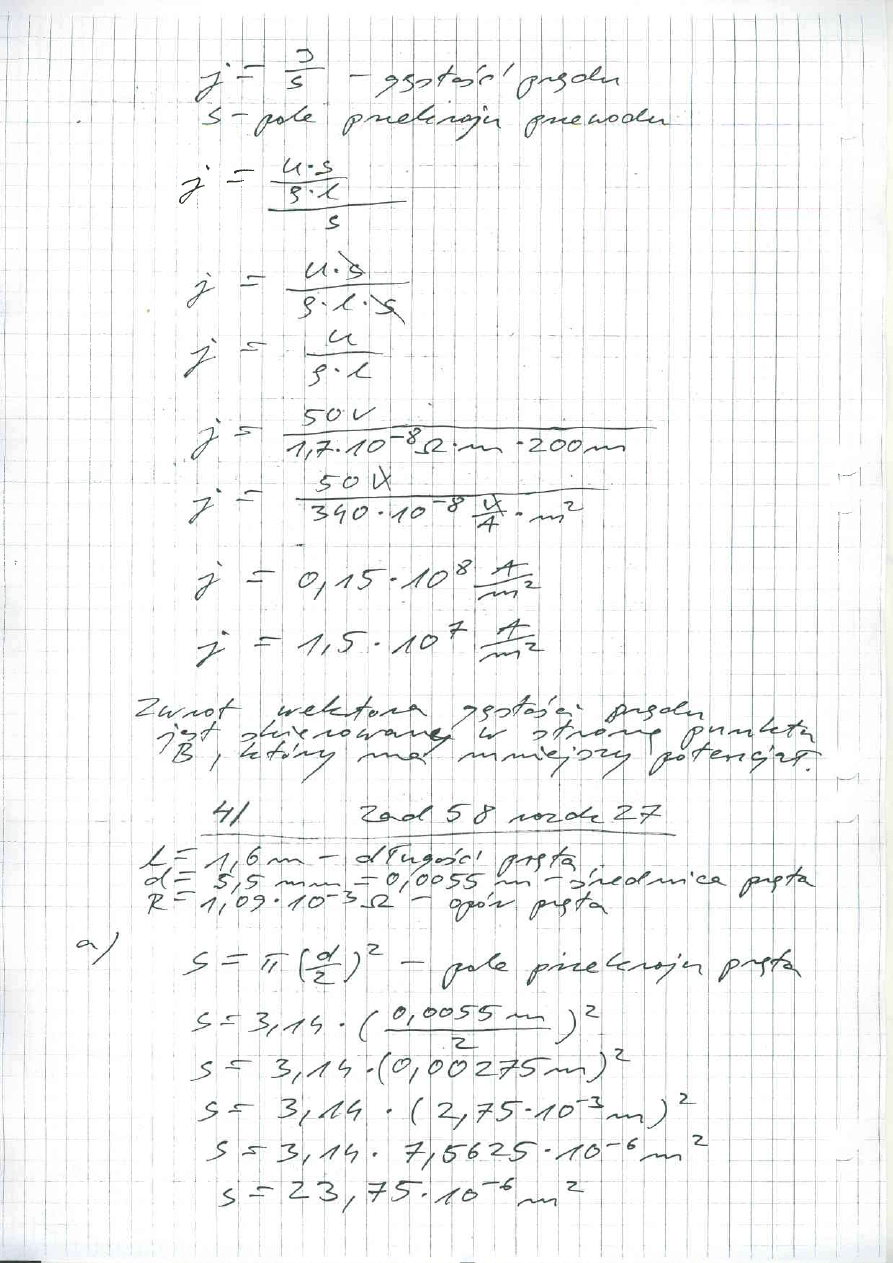 j = J/s – gęstość prądu
s – pole przekroju przewodu
j = ((u·s)/(ρ·l))/s
j = (u·s)/(ρ·l·s)
j = u/(ρ·l)
j = 50V/(1,7·10⁻⁸Ω·m·200m)
j = 50V/(340·10⁻⁸ V/A·m²)
j = 0,15·10⁸ A/m²
j = 1,5·10⁷ A/m²
Zwrot wektora gęstości prądu
jest skierowany w stronę punktu
B, który ma mniejszy potencjał.
4/ Zad 58 rozdz 27
l = 1,6m – długość pręta
d = 5,5 mm = 0,0055 m – średnica pręta
R = 1,09·10⁻³Ω – opór pręta
a)
s = π(d/2)² – pole przekroju pręta
s = 3,14·(0,0055m/2)²
s = 3,14·(0,00275m)²
s = 3,14·(2,75·10⁻³m)²
s = 3,14·7,5625·10⁻⁶m²
s = 23,75·10⁻⁶m²